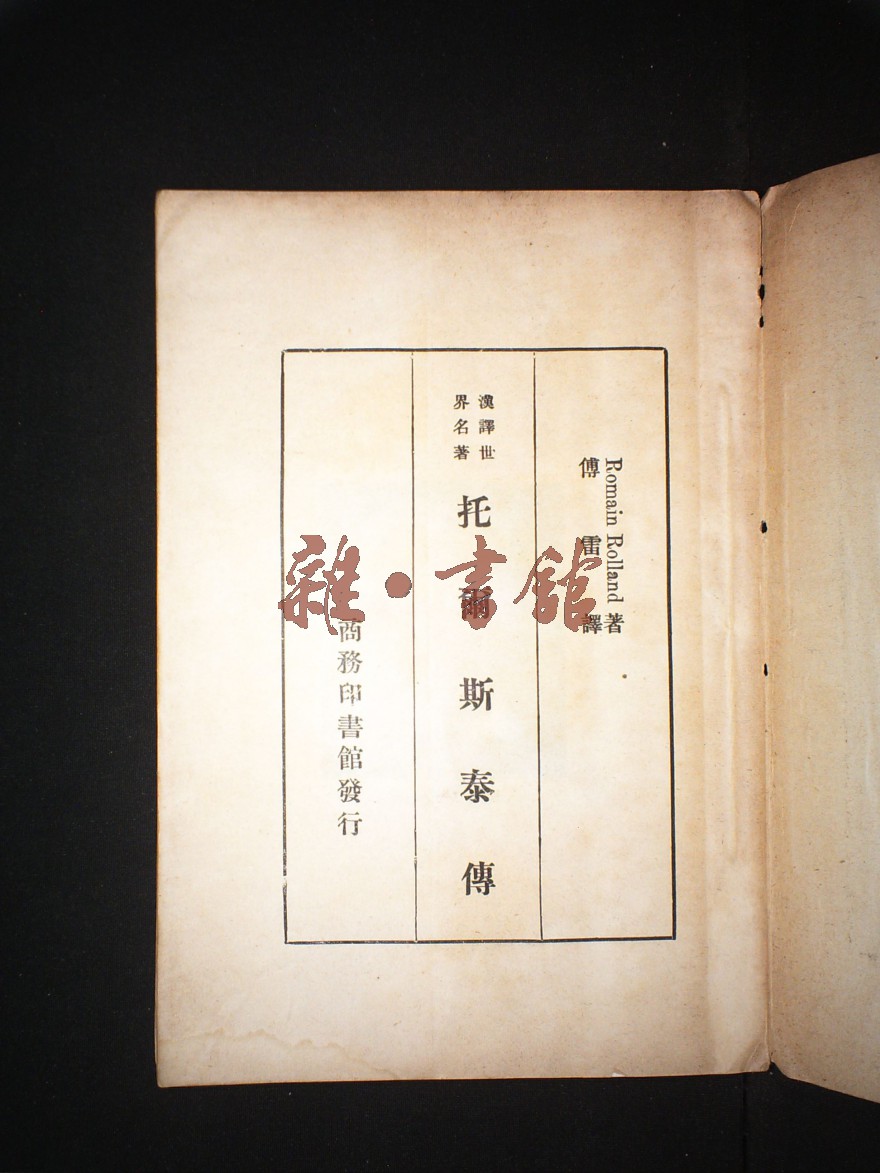 Romain Rolland 著
傅雷譯
漢譯世
界名著
托爾斯泰傳
商務印書館發行
雜·書館